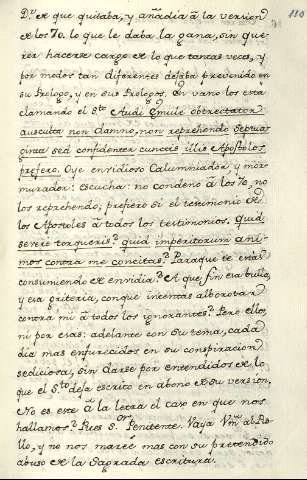 110
Dr. de que quitaba, y añadia â la version
de los 70. lo que le daba la gana, sin que-
rer hacerse cargo de lo que tantas veces, y
por modos tan diferentes dejaba prevenido en
su Prologo, y en sus Prologos. En vano los esta
clamando el Sto. Audi Æmule obtrectator
ausculta non damno, non reprehendo Septua-
ginta sed confidenter cunctis illis Apostolos
præfero. Oye envidioso Calumniador, y mor-
murador: escucha: no condeno â los 70, no
los reprehendo; prefiero si el testimonio de
los Apostoles â todos los testimonios. Quid
livore torqueris? quid imperitorum ani-
mos contra me concitas? Paraque te estas
consumiendo de envidia? A que fin esa bulla,
y esa griteria, conque intentas alborotar
contra mi â todos los ignorantes? Pero ellos,
ni por esas: adelante con su tema, cada
dia mas enfurecidos en su conspiracion
sediciosa, sin darse por entendidos de lo
que el Sto. deja escrito en abono de su version.
No es este â la letra el caso en que nos
hallamos? Pues Sor. Penitente Vaya Vm. al
llo, y no nos maree mas con su pretendido
abuso de la Sagrada escritura.